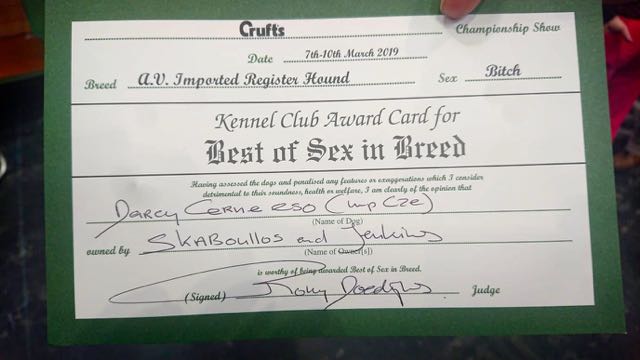 Crufts Championship Show
Date 7th-10th March 2019
Breed A.V. Imported Register Hound Sex Bitch
Kennel Club Award Card for
Best of Sex in Breed
Having assessed the dogs and penalised any features or exaggerations which I consider
detrimental to their soundness, health or welfare, I am clearly of the opinion that
Darcy Cerne eso (imp CZE)
(Name of Dog)
owned by Skaboullos and Jenkins
(Name of Owner[s])
is worthy of being awarded Best of Sex in Breed.
(Signed) Judge